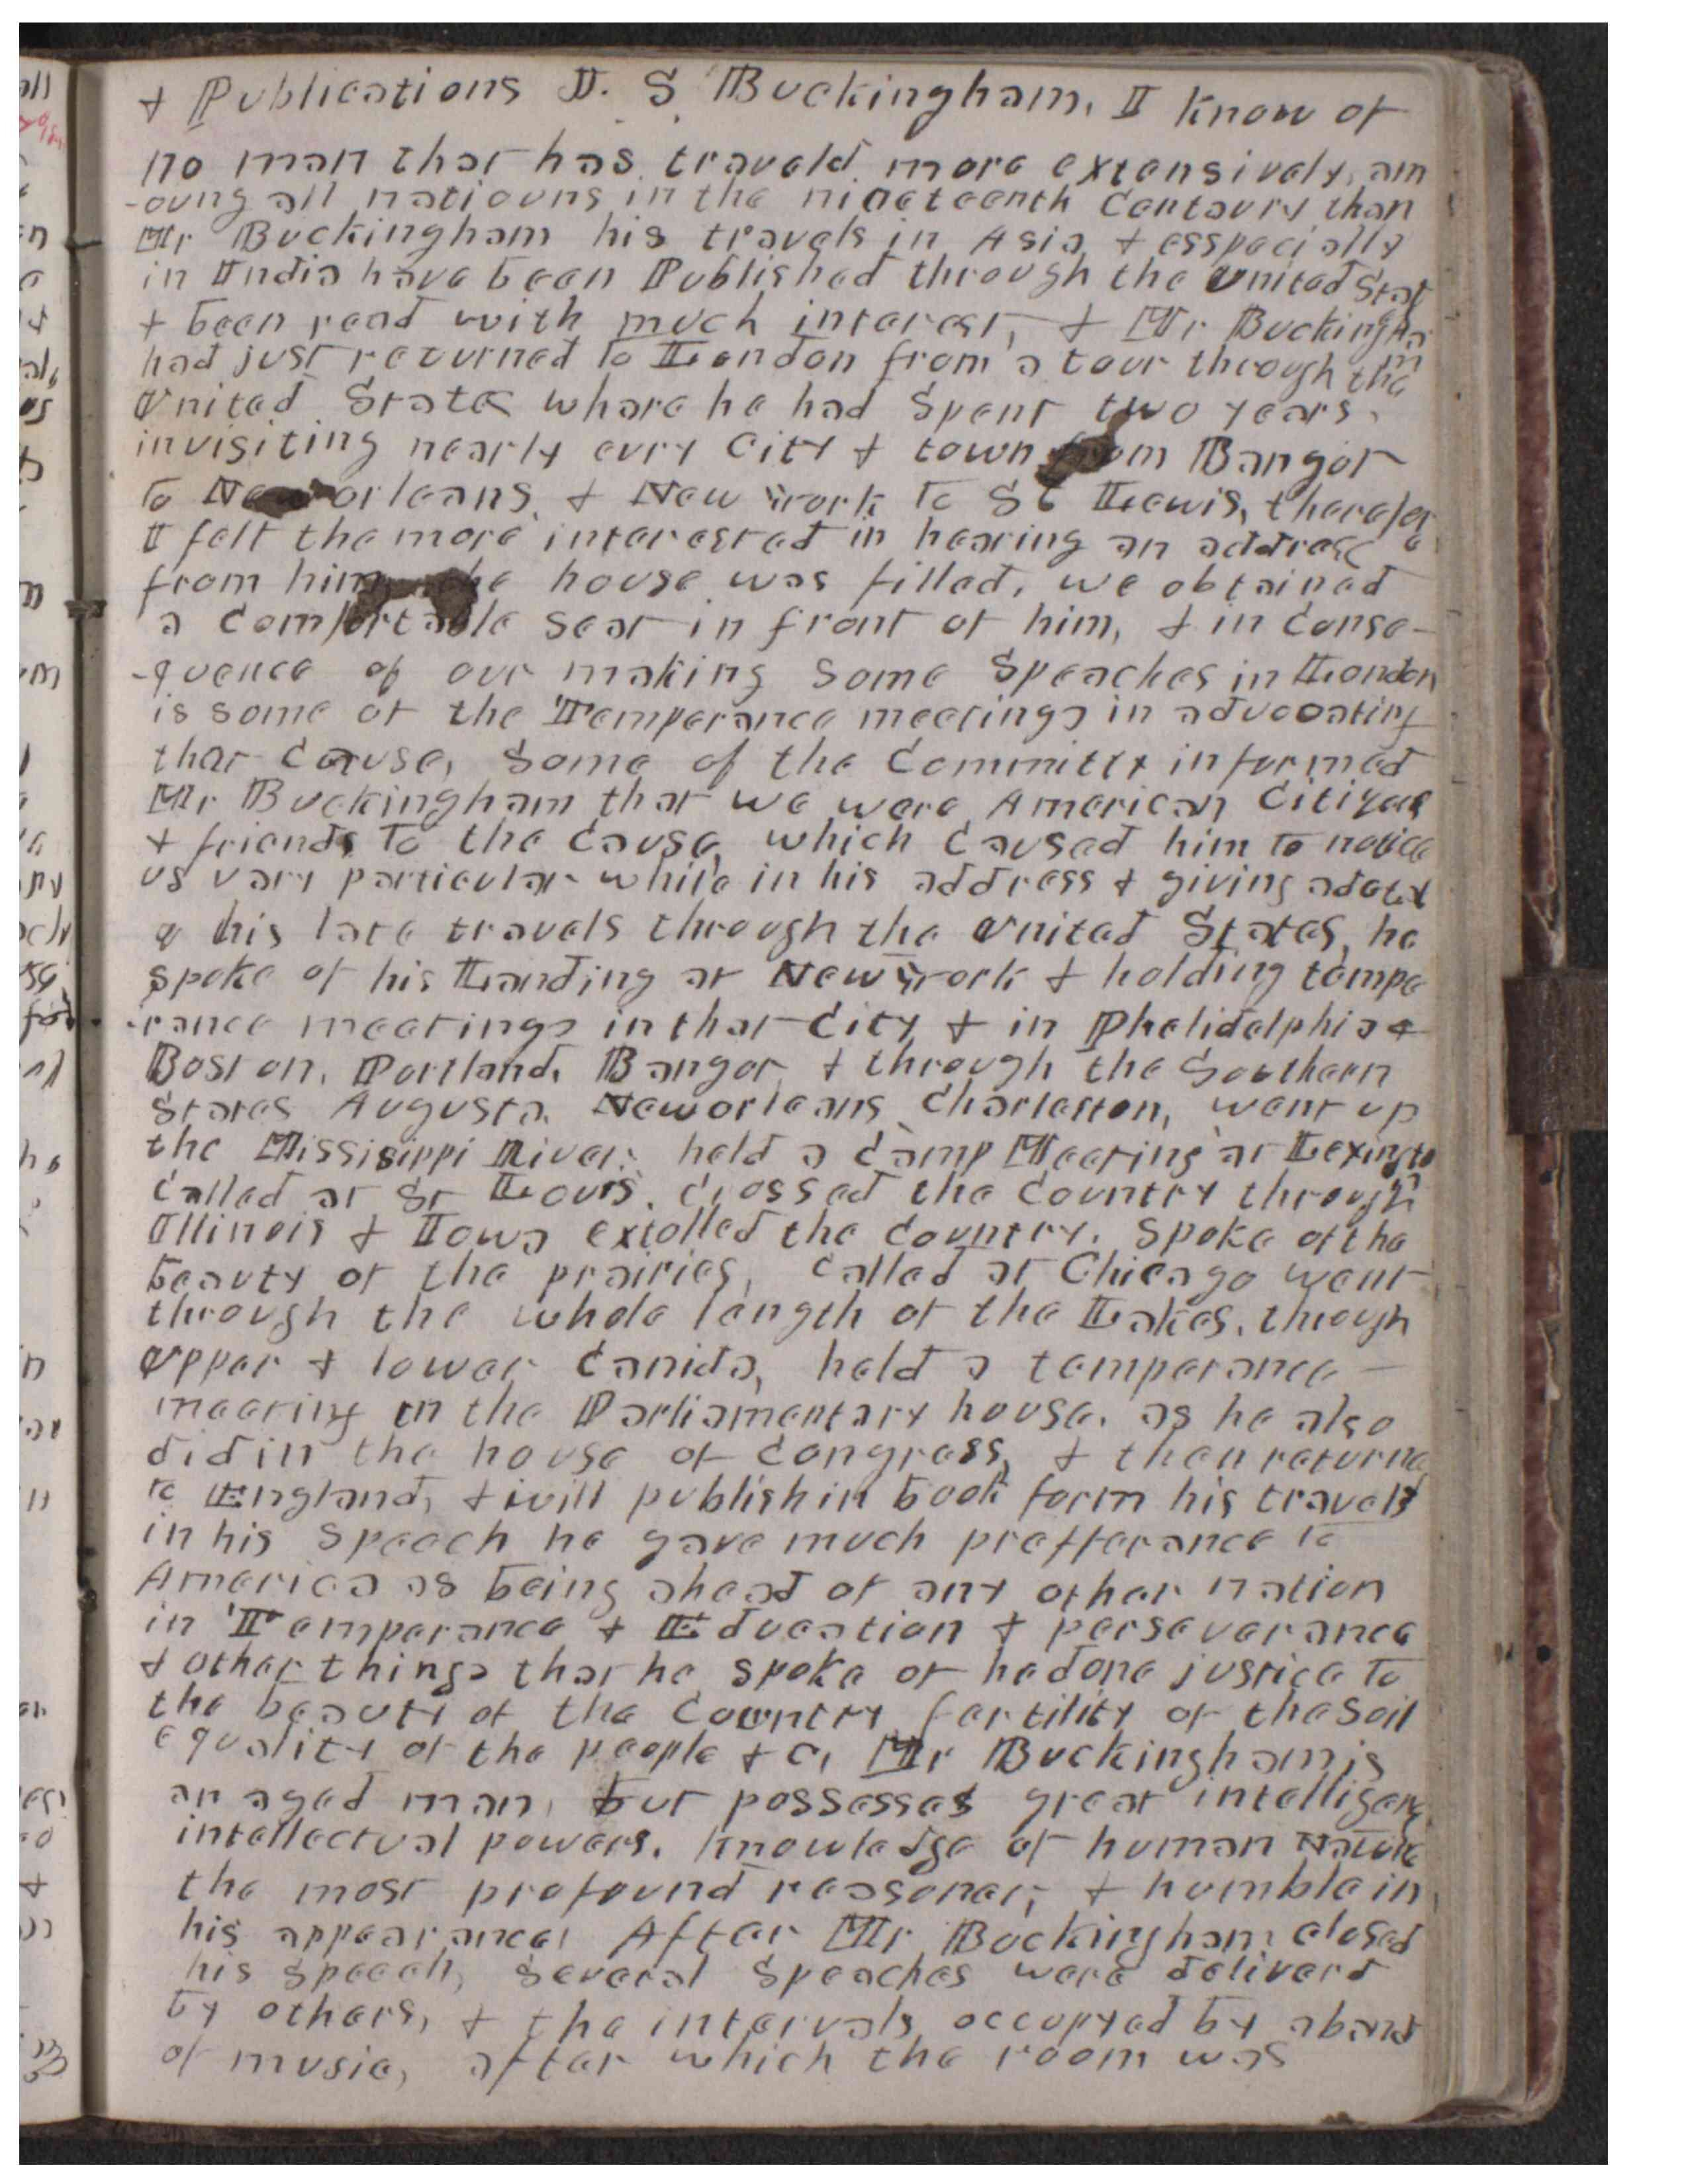 & Publications J. S Buckingham, I know of
no man that has traveld more extensively, am
-oung all natiouns in the nineteenth Centaury than
Mr Buckingham his travels in Asia & esspecially
in India have been Published through the United Stat
& been read with much interest, & Mr Buckingha
had just returned to London from a tour through the m
United States whare he had Spent two years,
invisiting nearly evry City & town from Bangor
to New orleans, & New York to St Lewis, therefor
I felt the more interested in hearing an address e
from him, the house was filled, we obtained
a Comfortable Seat in front of him, & in Conse-
-quence of our making Some Speaches in London
is some of the Temperance meetings in advocating
that Cause, Some of the Committy informed
Mr Buckingham that we were American Citizens
& friends to the Cause, which Caused him to notice
us vary particular while in his address & giving
of his late travels through the United States, he
spoke of his Landing at New York & holding tempe
-rance meetings in that City & in Phelidelphia &
Boston, Portland, Bangor, & through the Southern
States Augusta, Neworleans Charleston, went up
the Missisippi River, held a Camp Meeting at Lexingto
Called at St Louis, Crossed the Country through n
Illinois & Iowa extolled the Country. Spoke of the
beauty of the prairies, Called at Chicago went
through the whole length of the Lakes, through
Upper & lower Canida, held a temperance —
meeting in the Parliamentary house, as he also
did in the house of Congress, & then returne
to England, & will publish in book form his travels d
in his Speech he gave much prefferance to
America as being ahead of any other nation
in Temperance & Education & perseverance
& other things that he spoke of he done justice to
the beauty of the Country fertility of the Soil
equality of the people & c, Mr Buckingham is
an aged man, but possesses great intelligenc
intellectual powers. Knowledge of human Nature
the most profound reasoner, & humble in
his appearance, After Mr Buckingham closed
his speech, Several Speaches were deliverd
by others, & the intervals occupyed by aband
of music, after which the room was